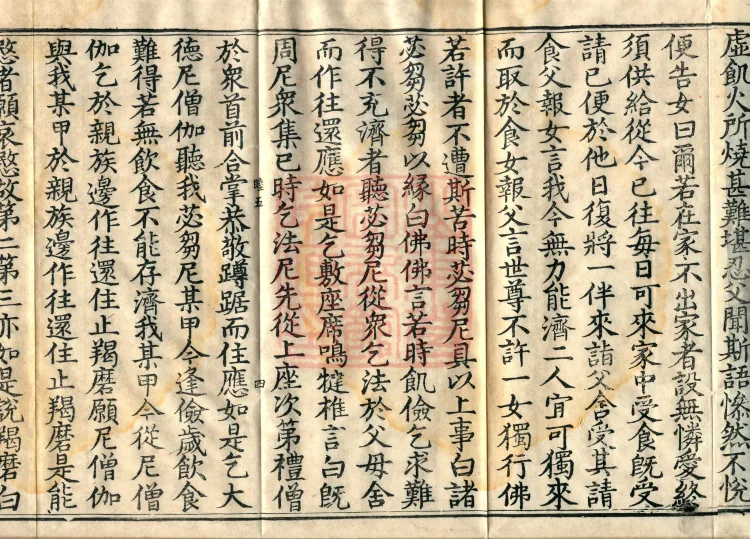 虛飢火所燒甚難堪忍父聞斯語慘然不悅
便告女曰爾若在家不出家者設無憐愛終
須供給從今已往每日可來家中受食旣受
請已便於他日復將一伴來詣父舍受其請
食父報女言我今無力能濟二人宜可獨來
而取於食女報父言世尊不許一女獨行佛
若許者不遭斯苦時苾芻尼具以上事白諸
苾芻苾芻以緣白佛佛言若時飢儉乞求難
得不充濟者聽苾芻尼從衆乞法於父母舍
而作往還應如是乞敷座席鳴揵椎言白旣
周尼衆集已時乞法尼先從上座次第禮僧
五
四
於衆首前合掌恭敬蹲踞而住應如是乞大
德尼僧伽聽我苾芻尼某甲今逢儉歲飲食
難得若無飲食不能存濟我某甲今從尼僧
伽乞於親族邊作往還住止羯磨願尼僧伽
與我某甲於親族邊作往還住止羯磨是能
愍者願哀愍故第二第三亦如是說羯磨白